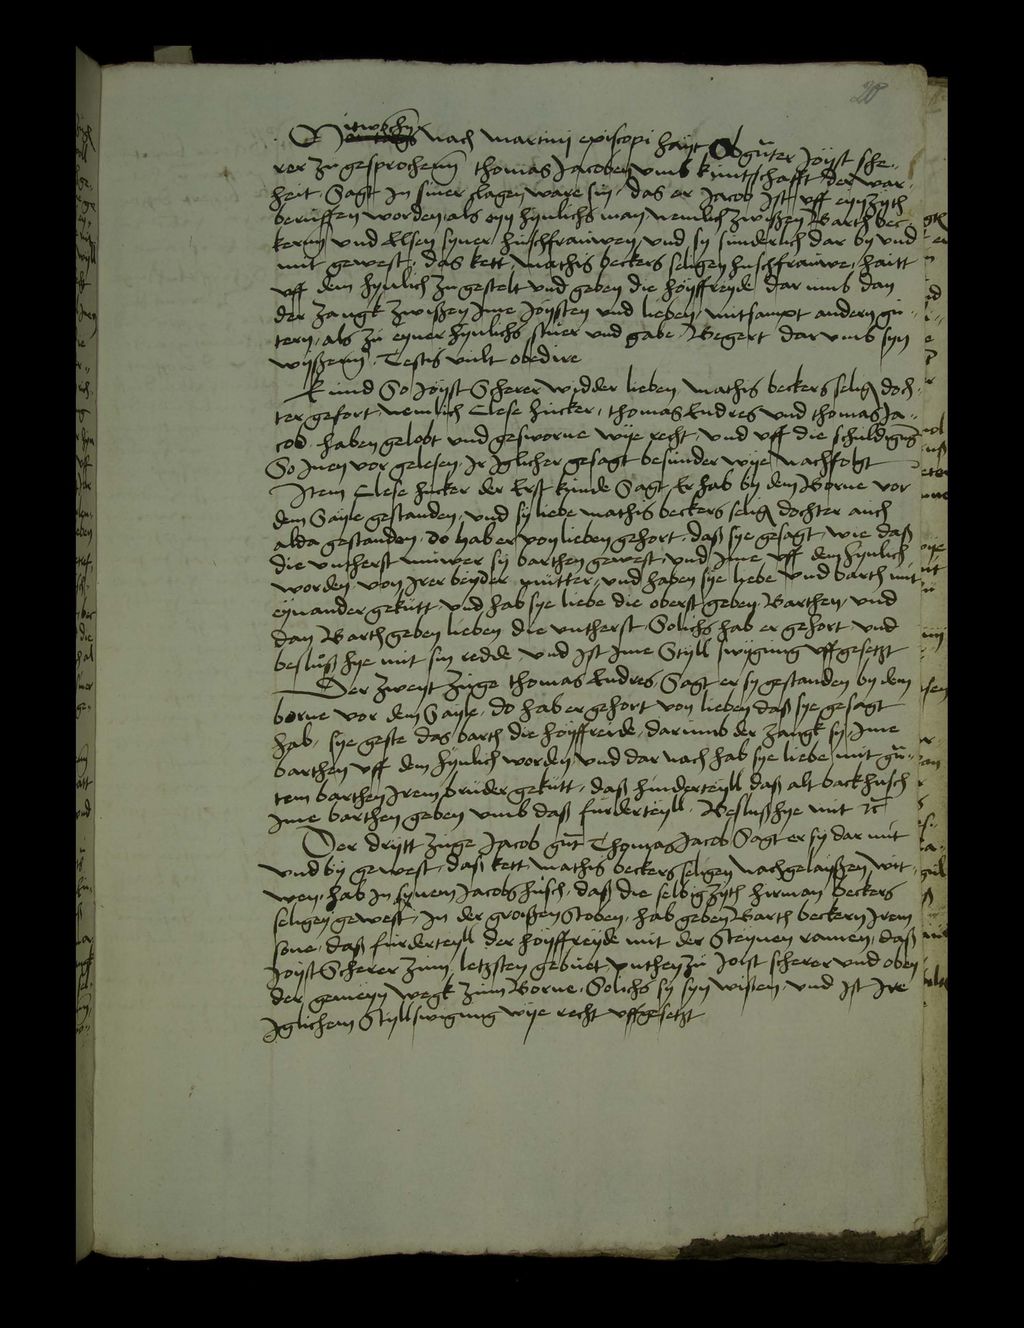 20
Mitwochen nach martinij episcopi hait Abgüter Joist sche-
rer zu gesprochenn thomas Jacoben umb kuntschafft der war-
heit Sagt in siner clagen ware sin das er Jacob Ist uff ein zyth
beruffen worden als eyn hynlichs man nemlich zwißen Barth bec-
kernn und Elsen syner hußfrauwen und sy sunderlich dar by und
mit gewest, das kett mathis beckers seligen hußfrauwe haitt
uff dem hynlich zu gestelt und geben die hoyffreyde dar umb dan
der zangk zwißen Ime Joysten und lieben mitsampt andern gü-
tern, als zu eyner hynlichs stuer und gabe. Begert dar umb syn
wyßenn. Testis vult obedire
Kund So Joist Scherer widder lieben mathis beckers selig doch-
ter gefort nemlich Clese hucker, thomas Endres und thomas Ja-
cob haben gelobt und gesworne wye recht, und uff die schuldigüng
So Inen vor gelesen Ir Iglicher gesagt besunder wye nachfolgt
Item Clese hucker der Erst kunde Sagt Er hab by dem Borne vor
dem Sayle gestanden, und sy liebe mathis beckers selig dochter auch
alda gestanden, do hab er von lieben gehort, daß sye gesagt, wie daß
die untherst muwer sy barthen gewest, und Ime uff dem hynlich
worden von Irer beyder mutter, und haben sye liebe und barth mit
eynander gekutt und hab sye liebe die oberst geben Barthen, und
dan Barth geben lieben die untherst Solichs hab er gehort und
besluß hye mit sin redde, und Ist Ime Styll swygung uffgesetzt
Der zweyt zuge thomas Endres, Sagt er sy gestanden by dem
borne vor dem Sayle, do hab er gehort von lieben daß sye gesagt
hab, sye geste das barth die hoyffreide, dar umb der zangk sy, Ime
barthen uff dem hynlich worden und dar nach hab sye liebe mit gü-
tem barthen Irem bruder gekutt, daß hinderteyll daß alt backhuß
Ime barthen geben umb daß furderteyll. Besluß hye mit etc
Der drytt zuge Jacob gnt Thomas Jacob Sagt er sy dar mit
und by gewest, daß kett mathis beckers seligen nachgelaißen wit-
wen, hab In synem Jacobs huß, daß die selbig zyth hirman beckers
seligen gewest, In der großen Stoben, hab geben Barth beckern Irem
sone, daß furderteyll der hoyffreyde mit der Steynen ramen, daß
Joist Scherer zum letzsten gebuet unthen zu Joist scherer und oben
der gemeyn wegk zum Borne, Solichs sy syn wissen und Ist Ire
Iglichem Styllswigung wye recht uffgesetzt